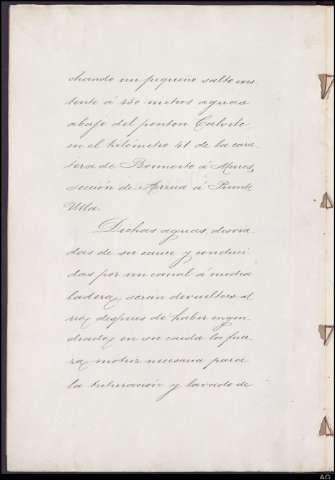 chando un pequeño salto exis-
tente á 450 metros aguas
abajo del ponton Calvelo
en el kilómetro 41 de la carre-
tera de á
sección de Arzua á Puente
Ulla.
Dichas aguas desvia-
das de su cauce y conduci-
das por un canal á media
ladera, serán devueltas al
rio, despues de haber engen-
drado, en su caida la fuer-
za motriz necesaria para
la trituración y lavado de